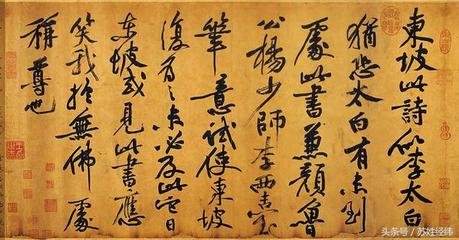 東坡此詩似李太白
猶恐太白有未到
處此書兼顏魯
公楊少師李西臺
筆意試使東坡
復為之未必及此它日
東坡或見此書應
笑我於無佛處
稱尊也
头条号 / 苏姓经纬